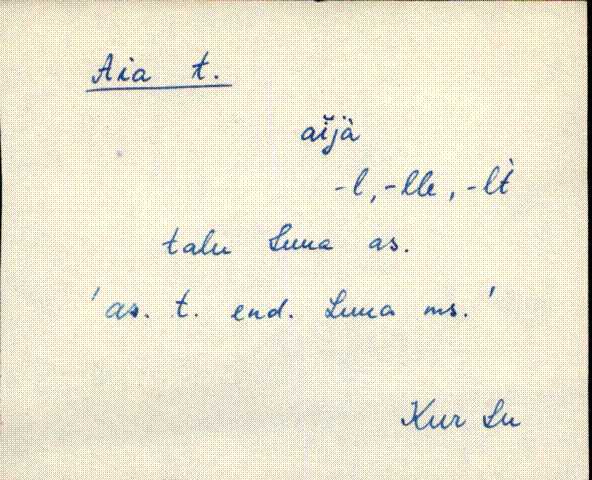 Aia t.
aĭjà
-l, -lle, -lt̀
talu Luua as.
'as. t. end. Luua ms.'
Kur Lu